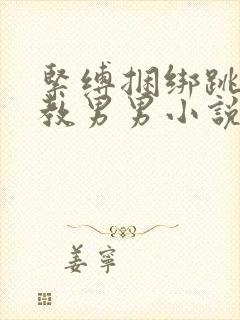 緊縛捆綁跳
教男男小說
姜寧